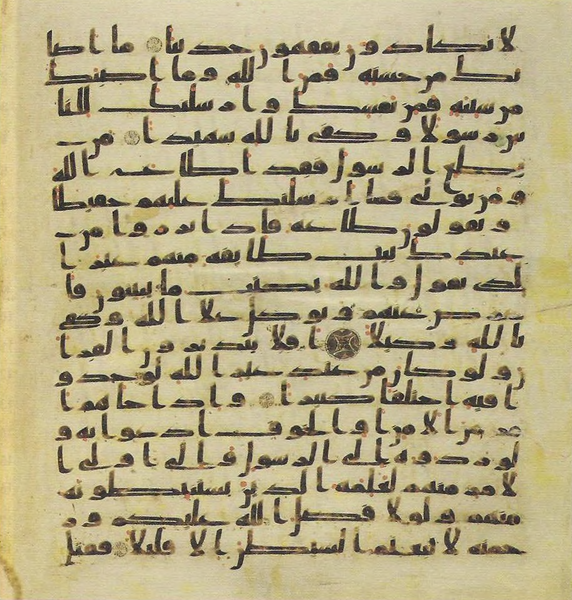 لا يكادون يفقهون حديثا ما اصا
بك من حسنة فمن الله وما اصبك
من سيئة فمن نفسك وارسلنك للنا
س رسولا وكفى بالله شهيدا من
يطع الرسول فقد اطاع الله
ومن تولى فما ارسلنك عليهم حفيظا
ويقولون طاعة فاذا برزوا من
عندك بيت طائفة منهم غير ا
لذي تقول والله يكتب ما يبيتون فا
عرض عنهم وتوكل علا الله وكفى
بالله وكيلا افلا يتدبرون القرا
ن ولو كان من عند غير الله لوجدو
ا فيه اختلفا كثيرا واذا جاهم ا
مر من الامن او الخوف اذاعوا به و
لو ردوه الى الرسول والى اولي ا
لامر منهم لعلمه الذين يستنبطونه
منهم ولولا فضل الله عليكم ور
حمته لاتبعتم الشيطن الا قليلا فقتل